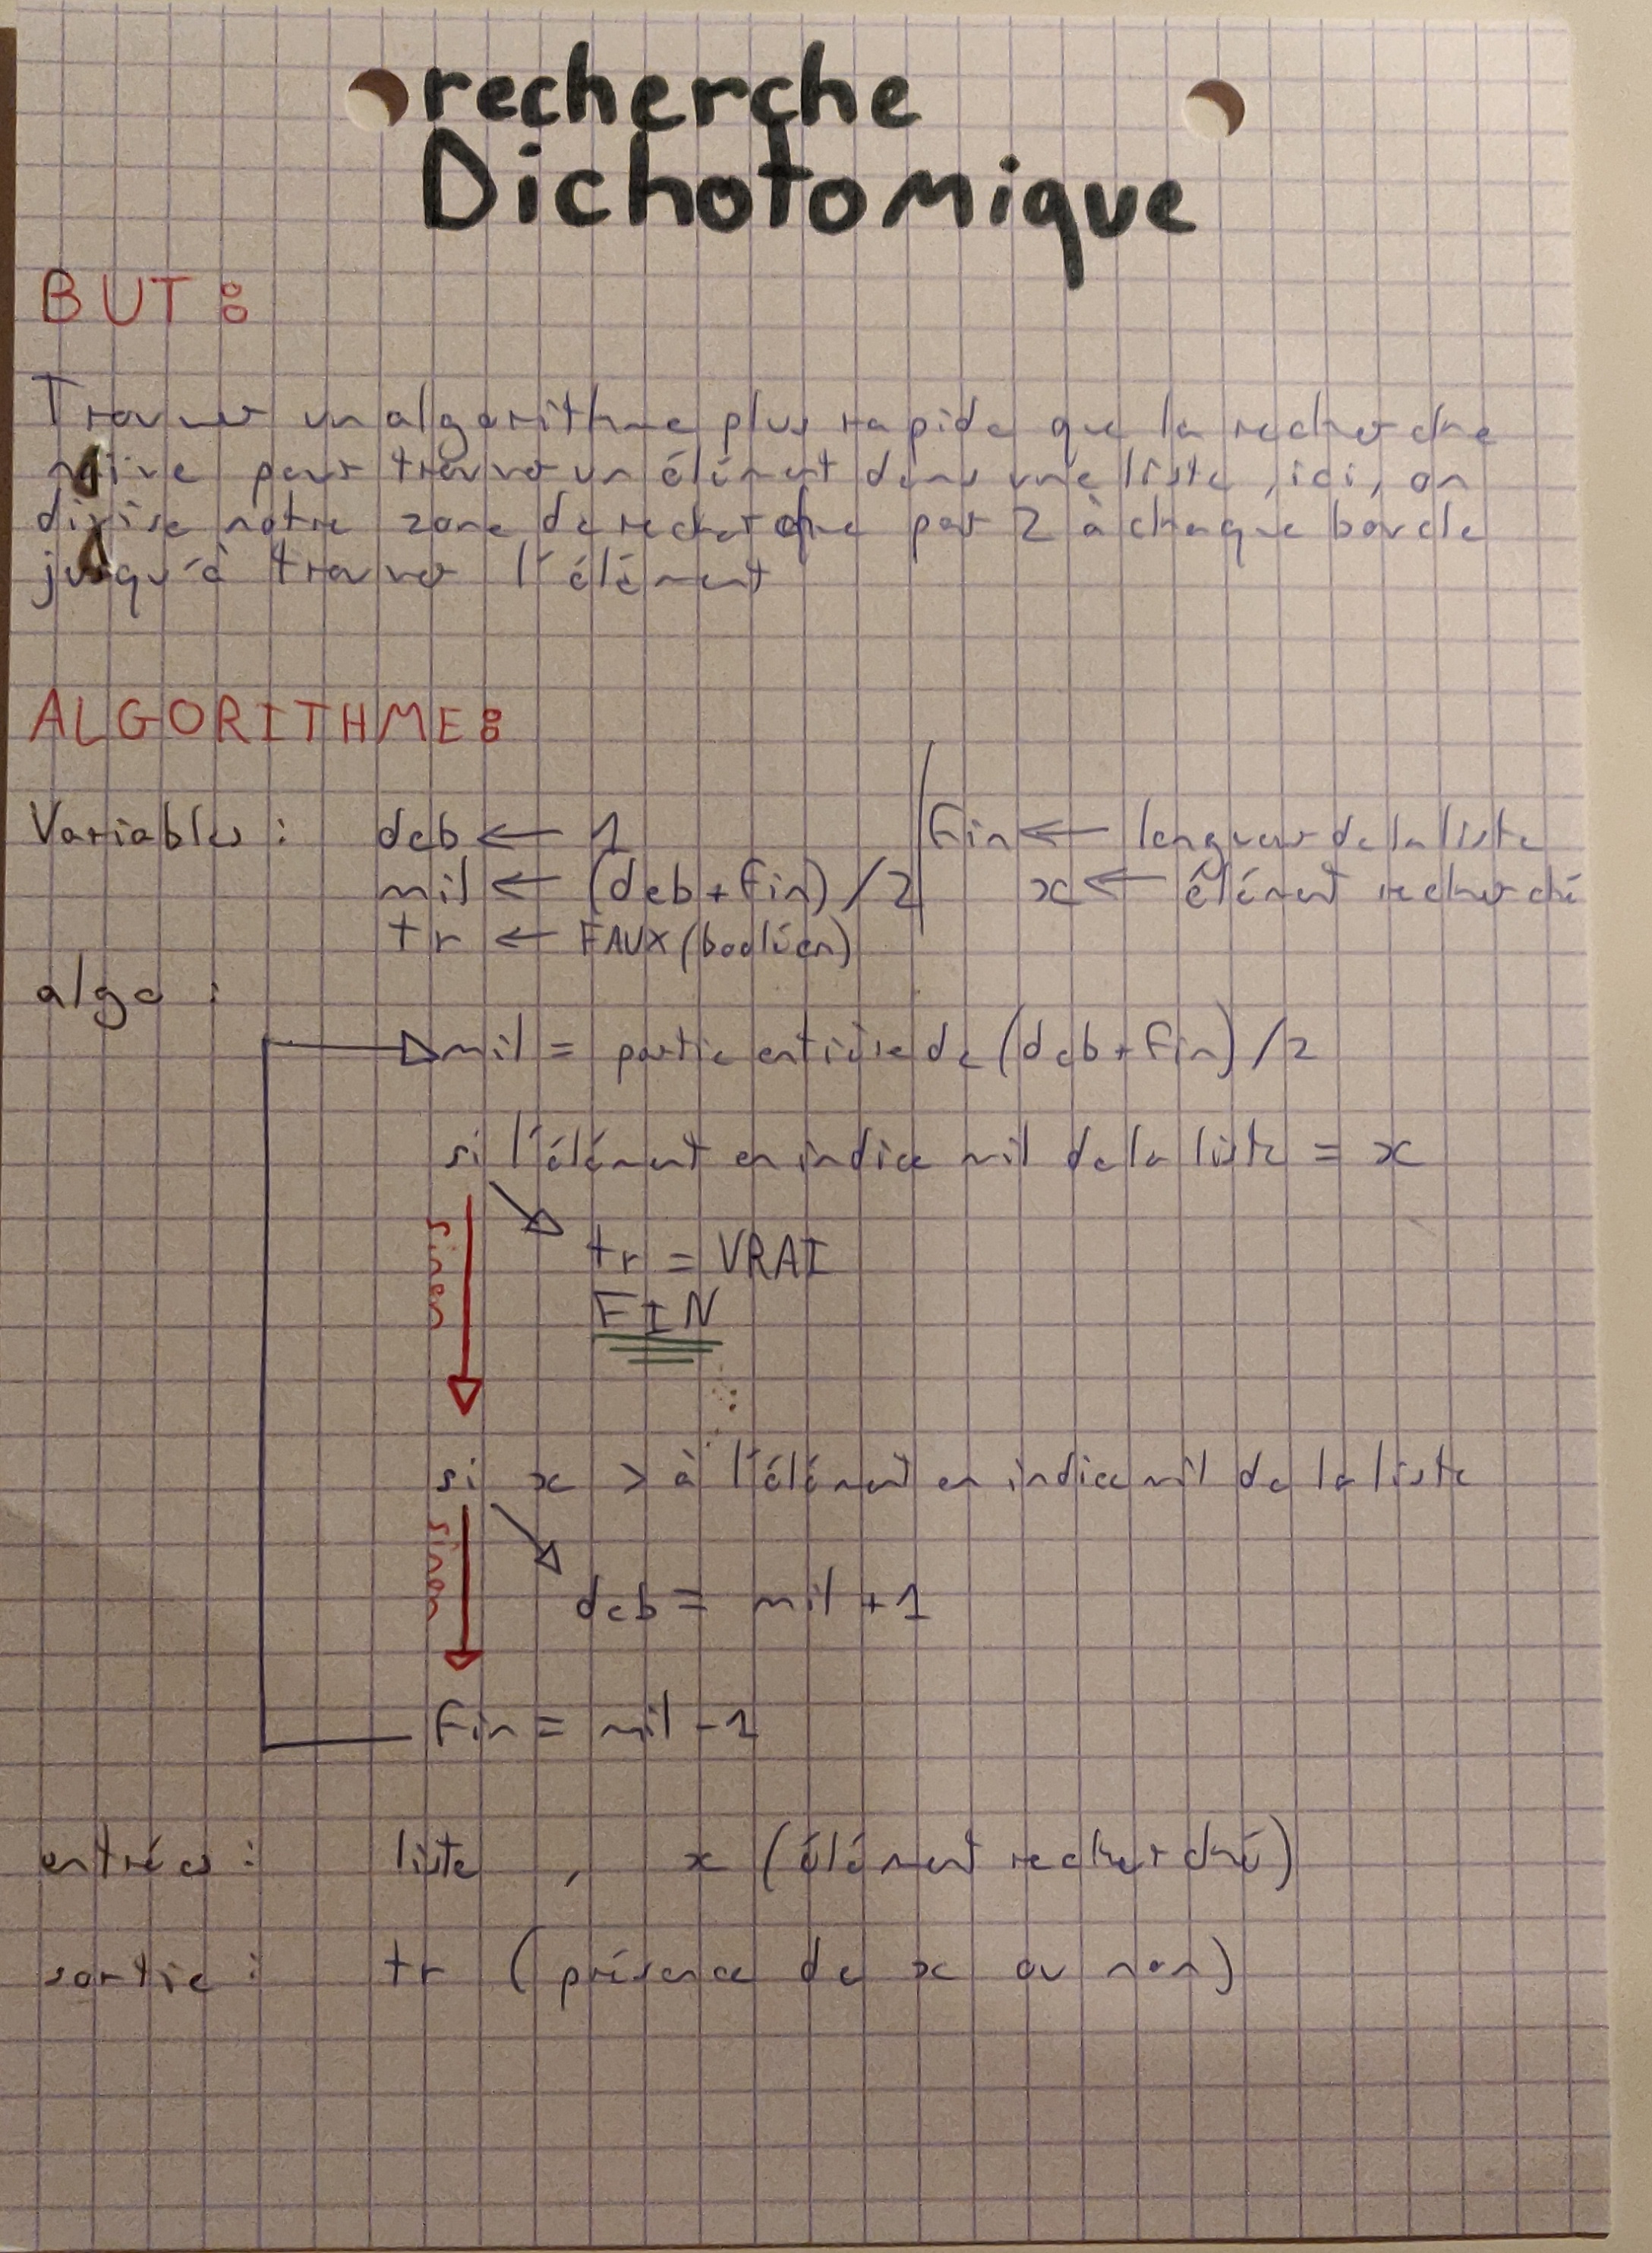 recherche
Dichotomique
BUT :
Trouver un algorithme plus rapide que la recherche
naïve pour trouver un élément dans une liste, ici, on
divise notre zone de recherche par 2 à chaque boucle
jusqu'à trouver l'élément
ALGORITHME :
Variables : deb ← 1 | Fin ← longueur de la liste
mil ← (deb + Fin) / 2 | x ← élément recherché
tr ← FAUX (booléen)
algo :
mil = partie entière de (deb + Fin) / 2
si l'élément en indice mil de la liste = x
sinon
tr = VRAI
FIN
si x > à l'élément en indice mil de la liste
sinon
deb = mil + 1
Fin = mil - 1
entrées : liste , x (élément recherché)
sortie : tr (présence de x ou non)